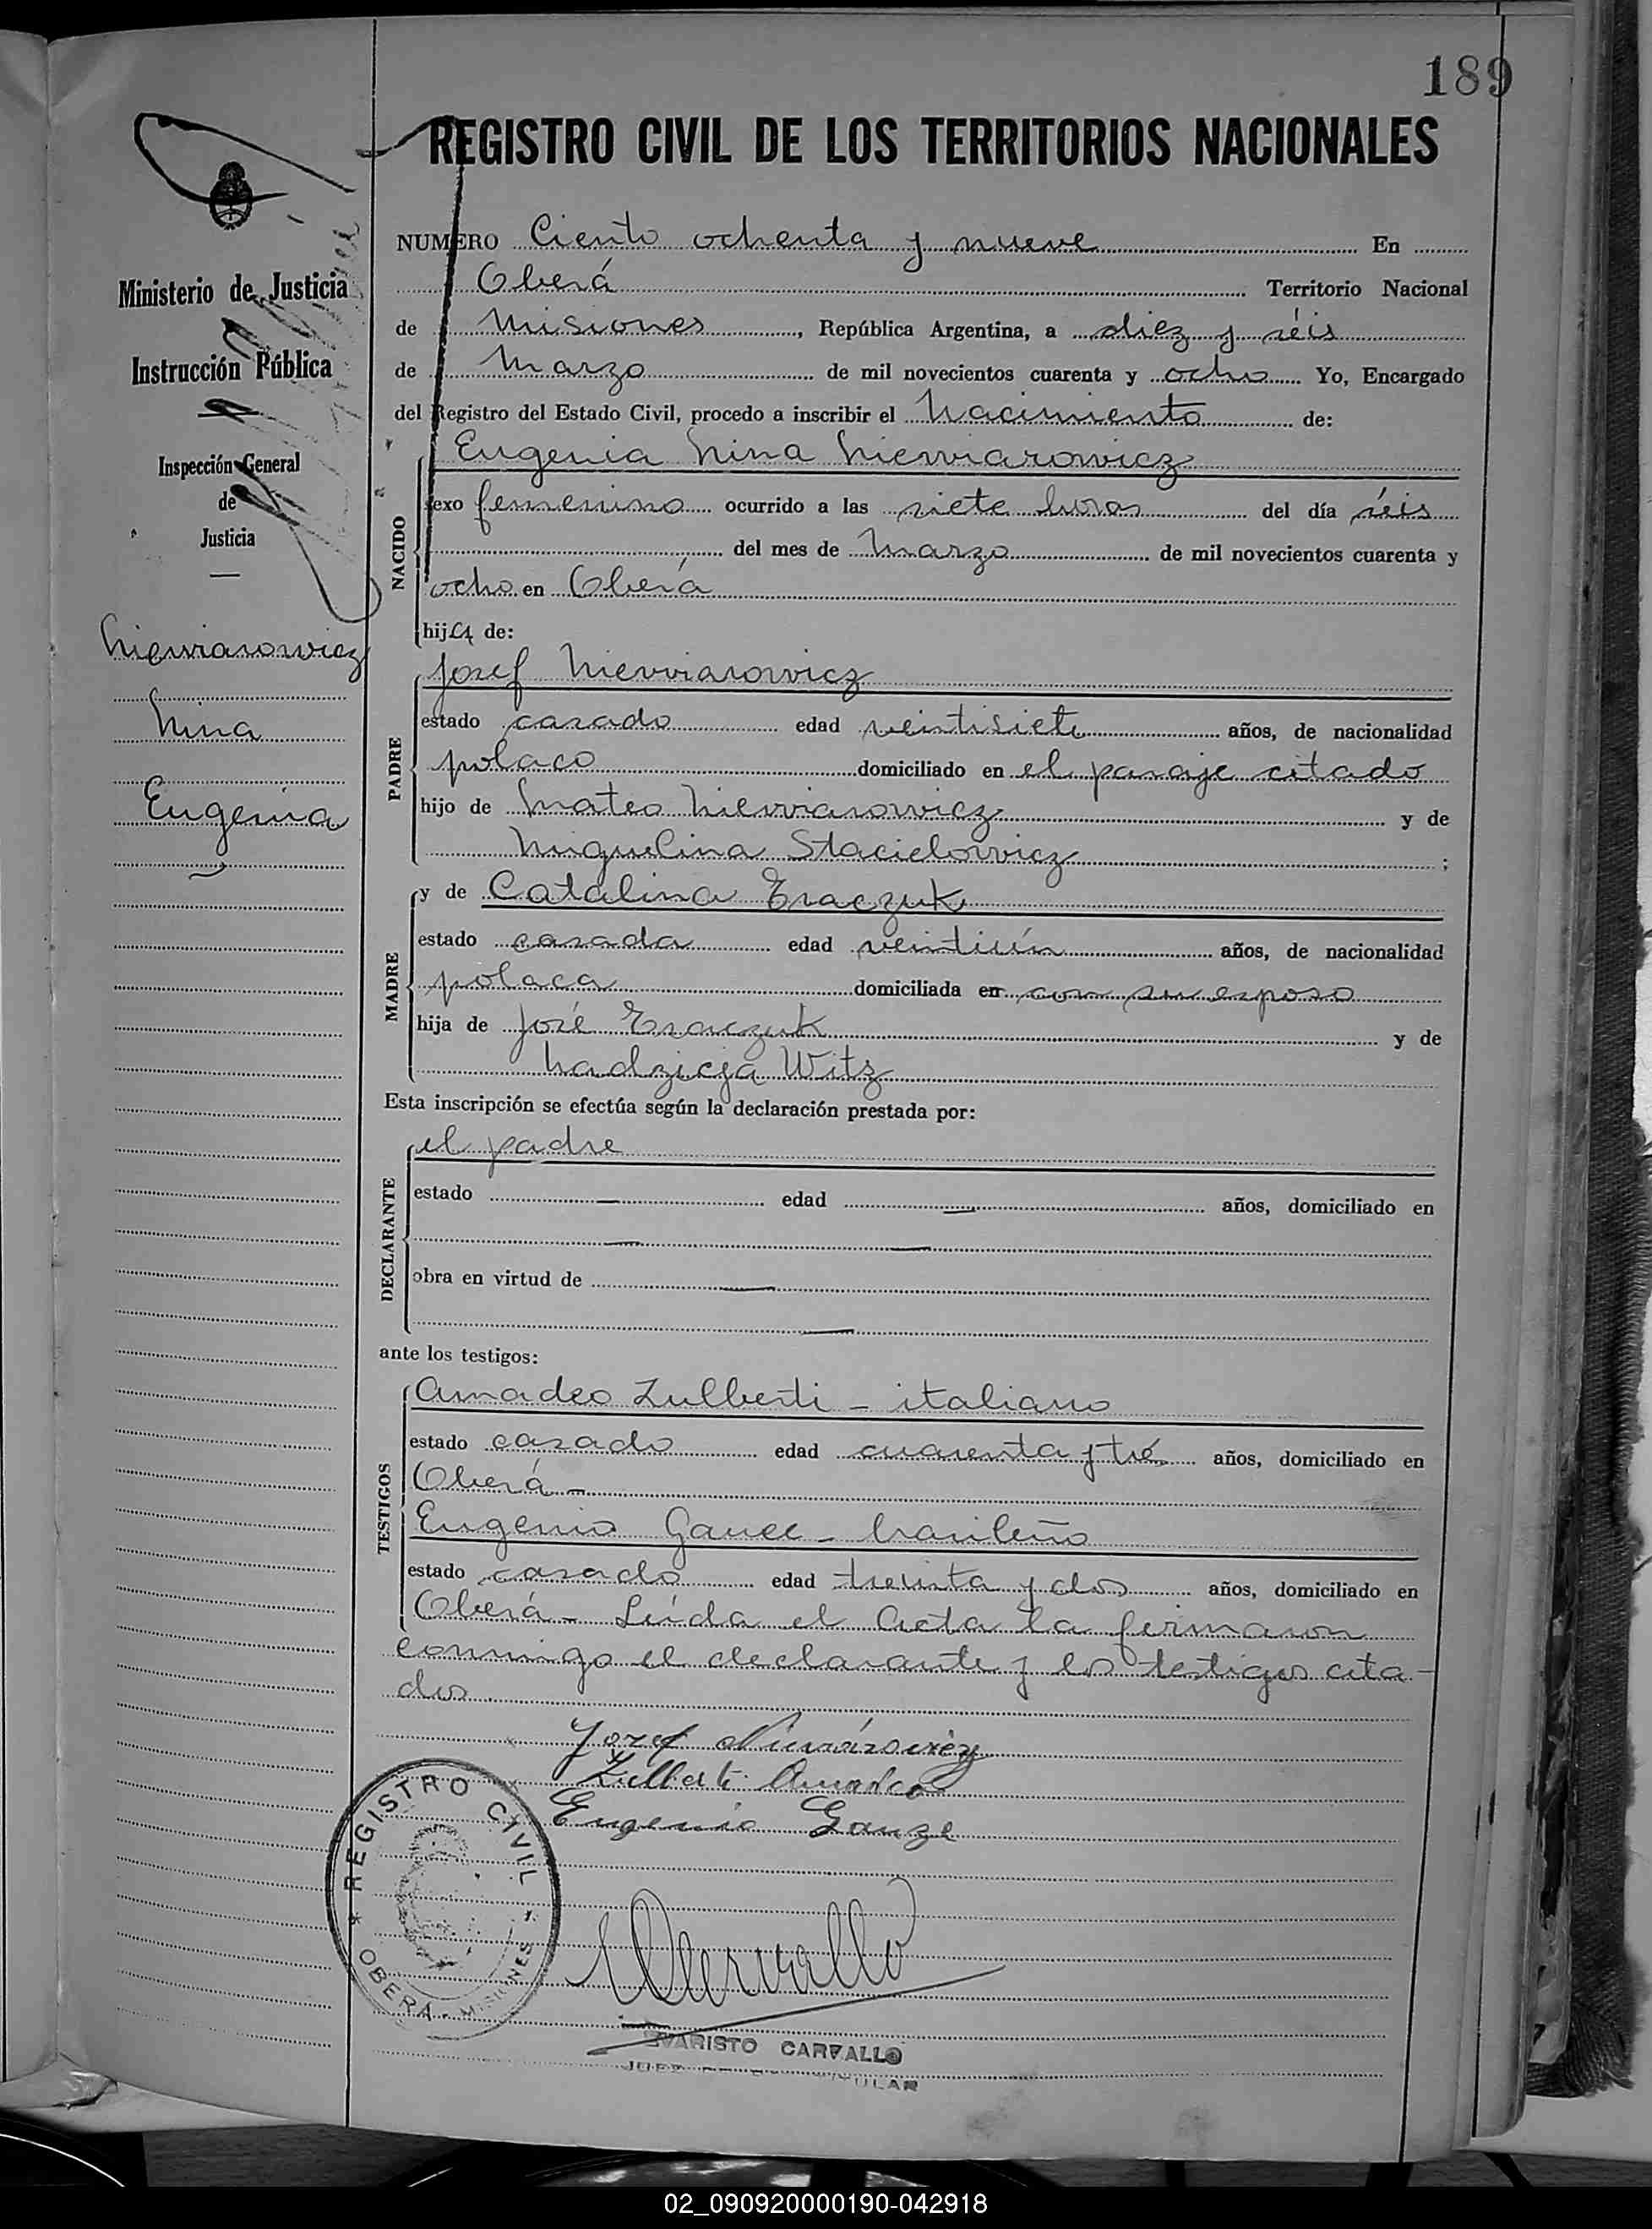 189
REGISTRO CIVIL DE LOS TERRITORIOS NACIONALES
Ministerio de Justicia
Instrucción Pública
Inspección General
de
Justicia
Niewiarowicz
Nina
Eugenia
NUMERO Ciento ochenta y nueve En
Oberá Territorio Nacional
de Misiones, República Argentina, a diez y séis
de Marzo de mil novecientos cuarenta y ocho Yo, Encargado
del Registro del Estado Civil, procedo a inscribir el Nacimiento de:
NACIDO
Eugenia Nina Niewiarowicz
sexo femenino ocurrido a las siete horas del día séis
del mes de Marzo de mil novecientos cuarenta y
ocho en Oberá
hija de:
PADRE
Josef Niewiarowicz
estado casado edad veintisiete años, de nacionalidad
polaco domiciliado en el paraje citado
hijo de Mateo Niewiarowicz y de
Miguelina Stacielowicz ;
MADRE
y de Catalina Eraczuk
estado casada edad veintiún años, de nacionalidad
polaca domiciliada en con su esposo
hija de José Eraczuk y de
Nadzieja Witz
Esta inscripción se efectúa según la declaración prestada por:
DECLARANTE
el padre
estado — edad — años, domiciliado en
— —
obra en virtud de —
—
ante los testigos:
TESTIGOS
Amadeo Zulberti - italiano
estado casado edad cuarenta y tré años, domiciliado en
Oberá -
Eugenio Gauce - brasileño
estado casado edad treinta y dos años, domiciliado en
Oberá - Leída el Acta la firmaron
conmigo el declarante y los testigos cita-
dos.
Jozef Niewiárowicz
Zulberti Amadeo
Eugenio Gauze
REGISTRO CIVIL
OBERA - MISIONES
EVARISTO CARVALLO
JUEZ DE TITULAR
02_090920000190-042918